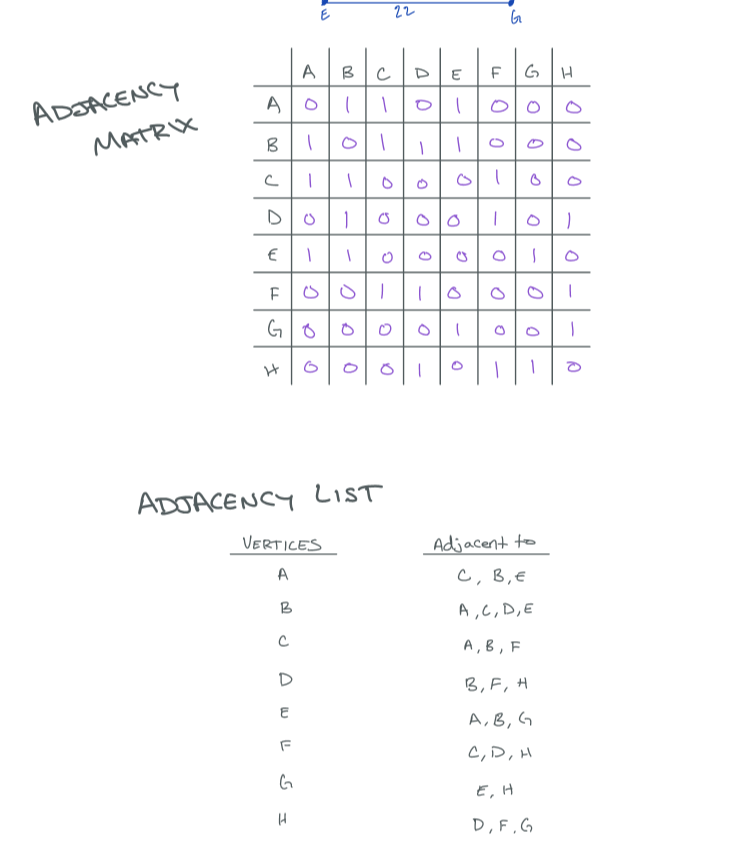 E 22 G
ADJACENCY
MATRIX
A B C D E F G H
A 0 1 1 0 1 0 0 0
B 1 0 1 1 1 0 0 0
C 1 1 0 0 0 1 0 0
D 0 1 0 0 0 1 0 1
E 1 1 0 0 0 0 1 0
F 0 0 1 1 0 0 0 1
G 0 0 0 0 1 0 0 1
H 0 0 0 1 0 1 1 0
ADJACENCY LIST
VERTICES Adjacent to
A C, B, E
B A, C, D, E
C A, B, F
D B, F, H
E A, B, G
F C, D, H
G E, H
H D, F, G